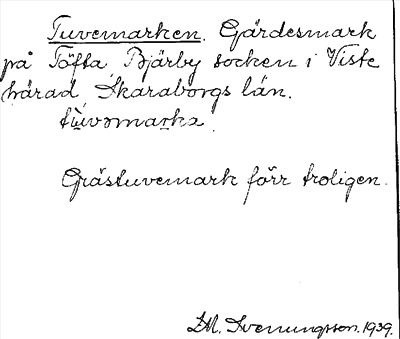 Tuvemarken. Gärdesmark
på Töfta Bjärby socken i Viste
härad, Skaraborgs län.
tùvəmarka.
Grästuvemark förr troligen.
L.M. Svenungsson. 1939.